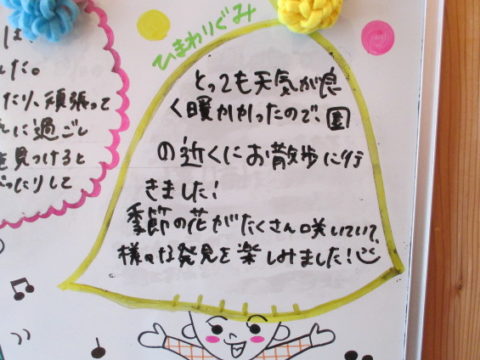 ひまわりぐみ
とっても天気が良
く暖かかったので、園
の近くにお散歩に行
きました!
季節の花がたくさん咲いていて、
様々な発見を楽しみました!
は、
した。
たり、頑張って
に過ごし
を見つけると
たりして